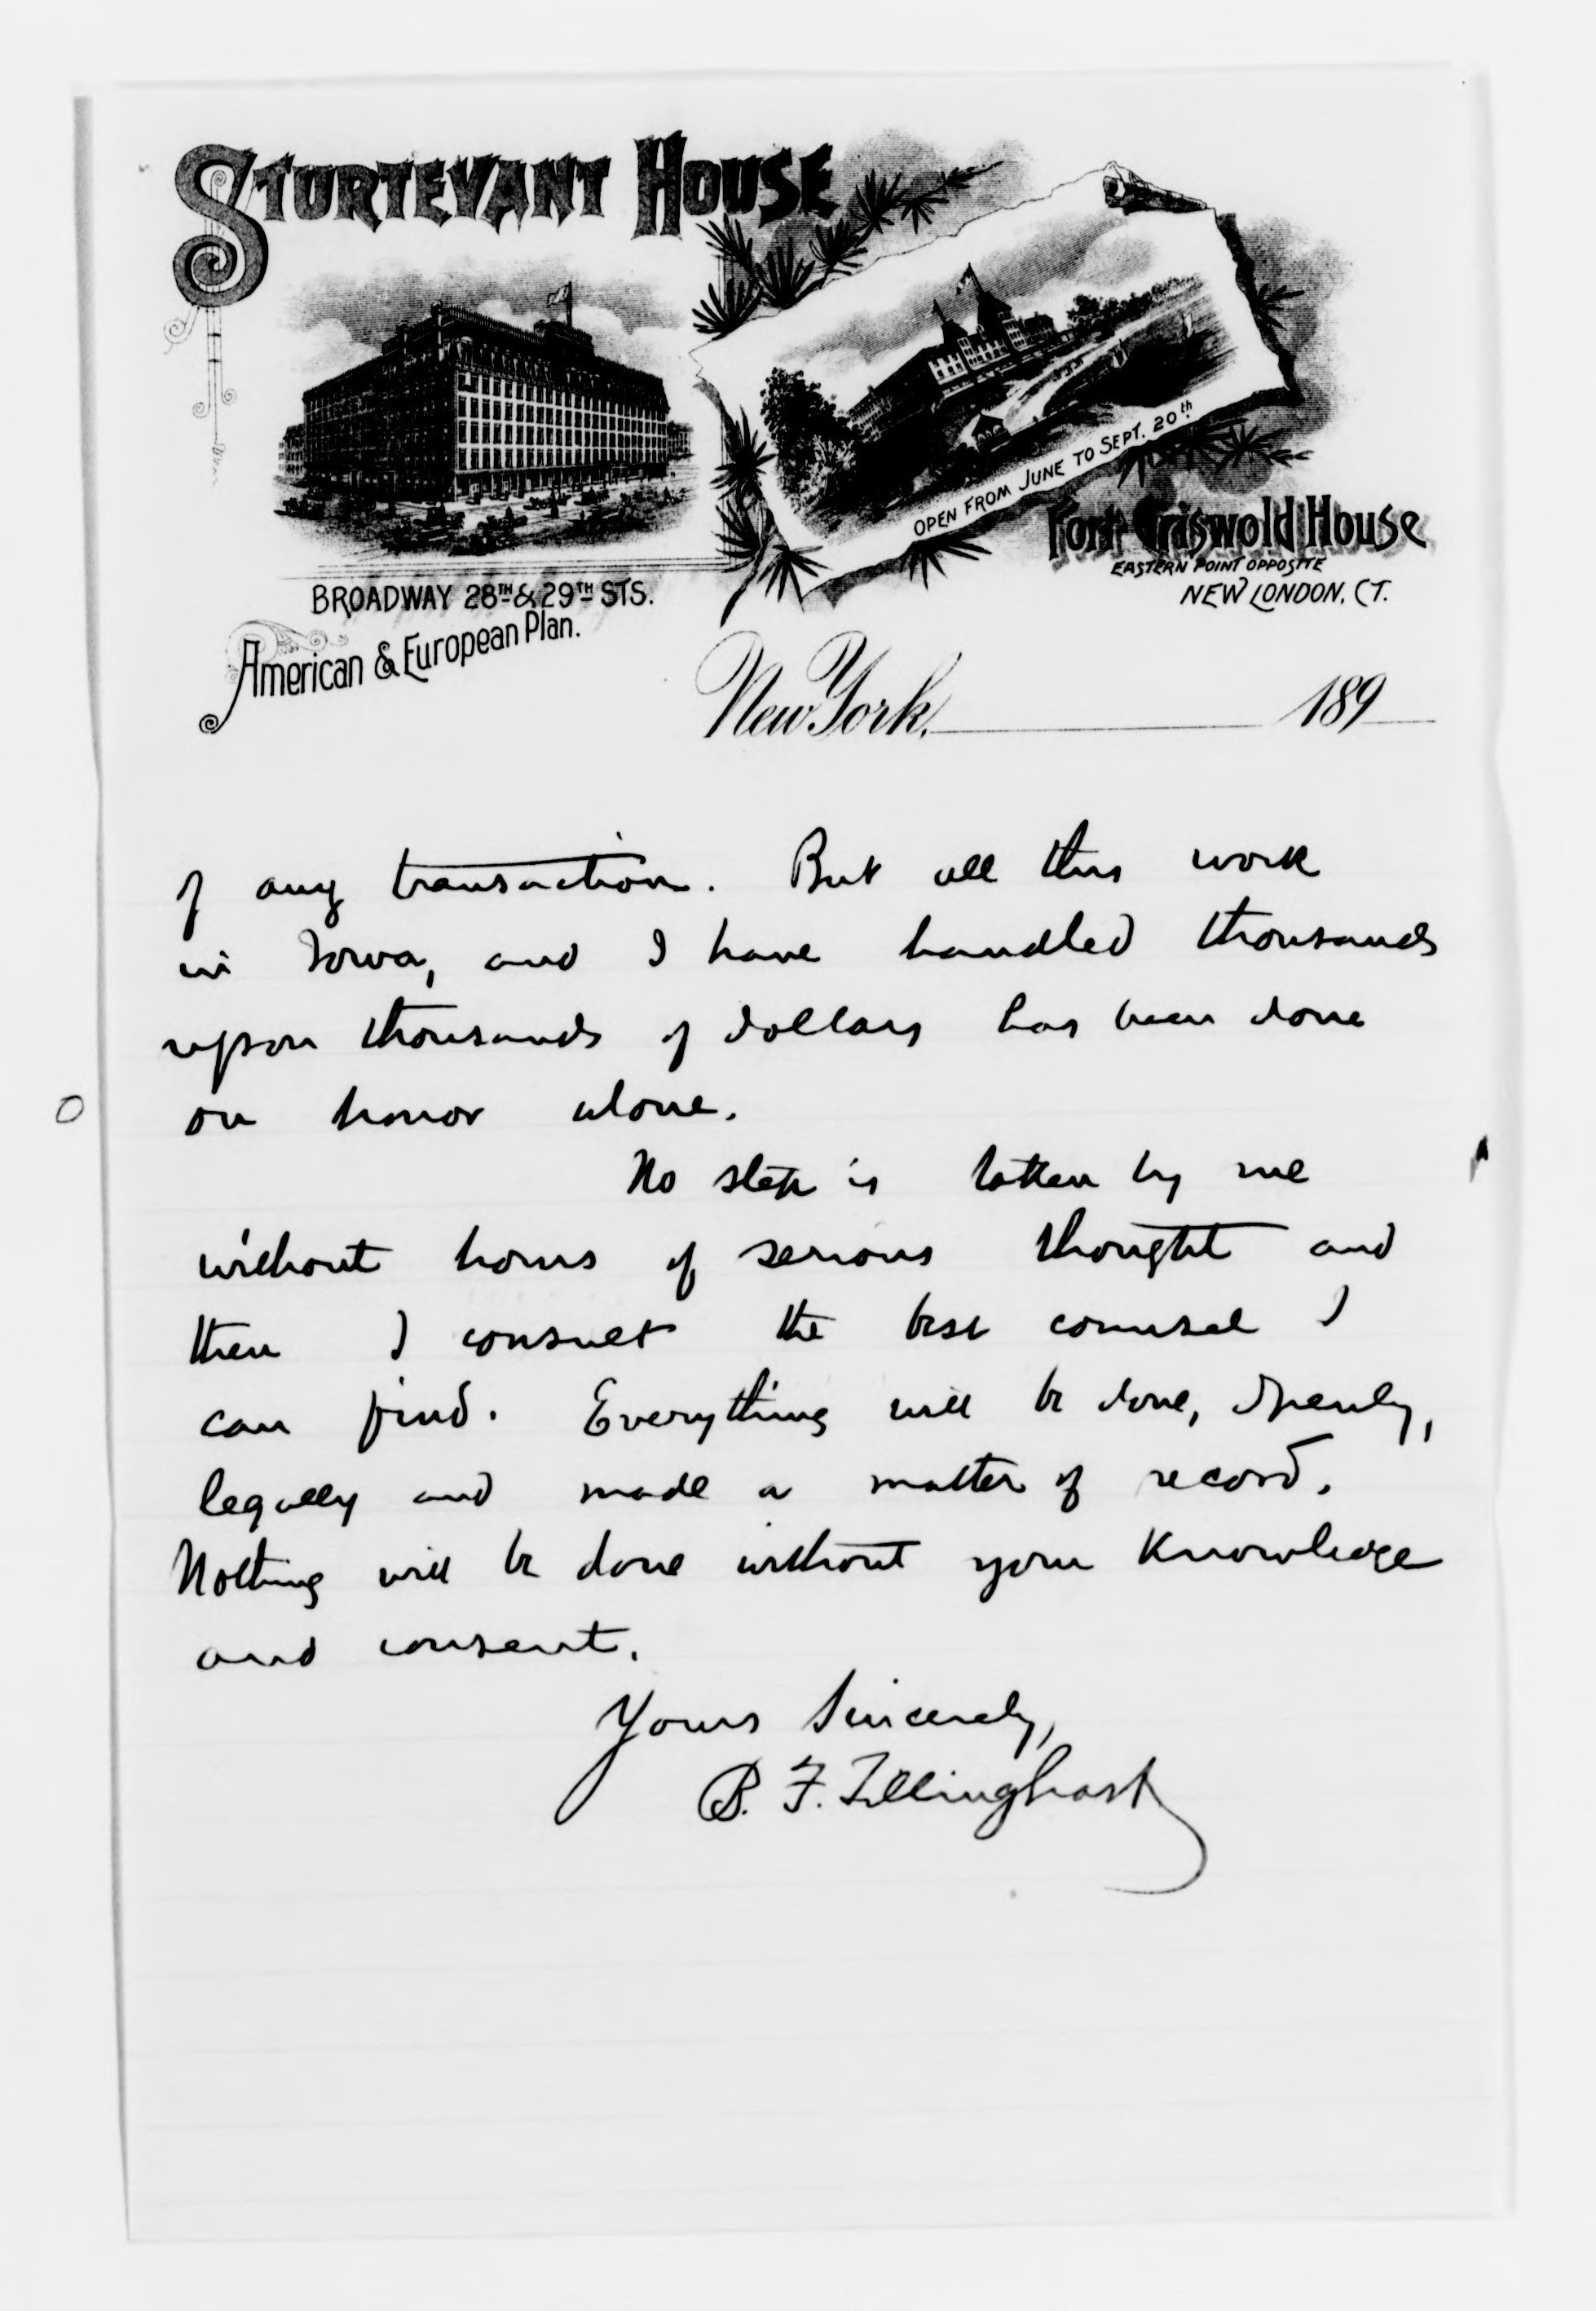 STURTEVANT HOUSE
OPEN FROM JUNE TO SEPT. 20th
Fort Griswold House
EASTERN POINT OPPOSITE
NEW LONDON, CT.
BROADWAY 28TH & 29TH STS.
American & European Plan.
New York, 189
of any transaction. But all this work
in Iowa, and I have handled thousands
upon thousands of dollars has been done
on honor alone.
No step is taken by me
without hours of serious thought and
then I consult the best counsel I
can find. Everything will be done, openly,
legally and made a matter of record.
Nothing will be done without your knowledge
and consent.
Yours Sincerely,
B. F. Tillinghast